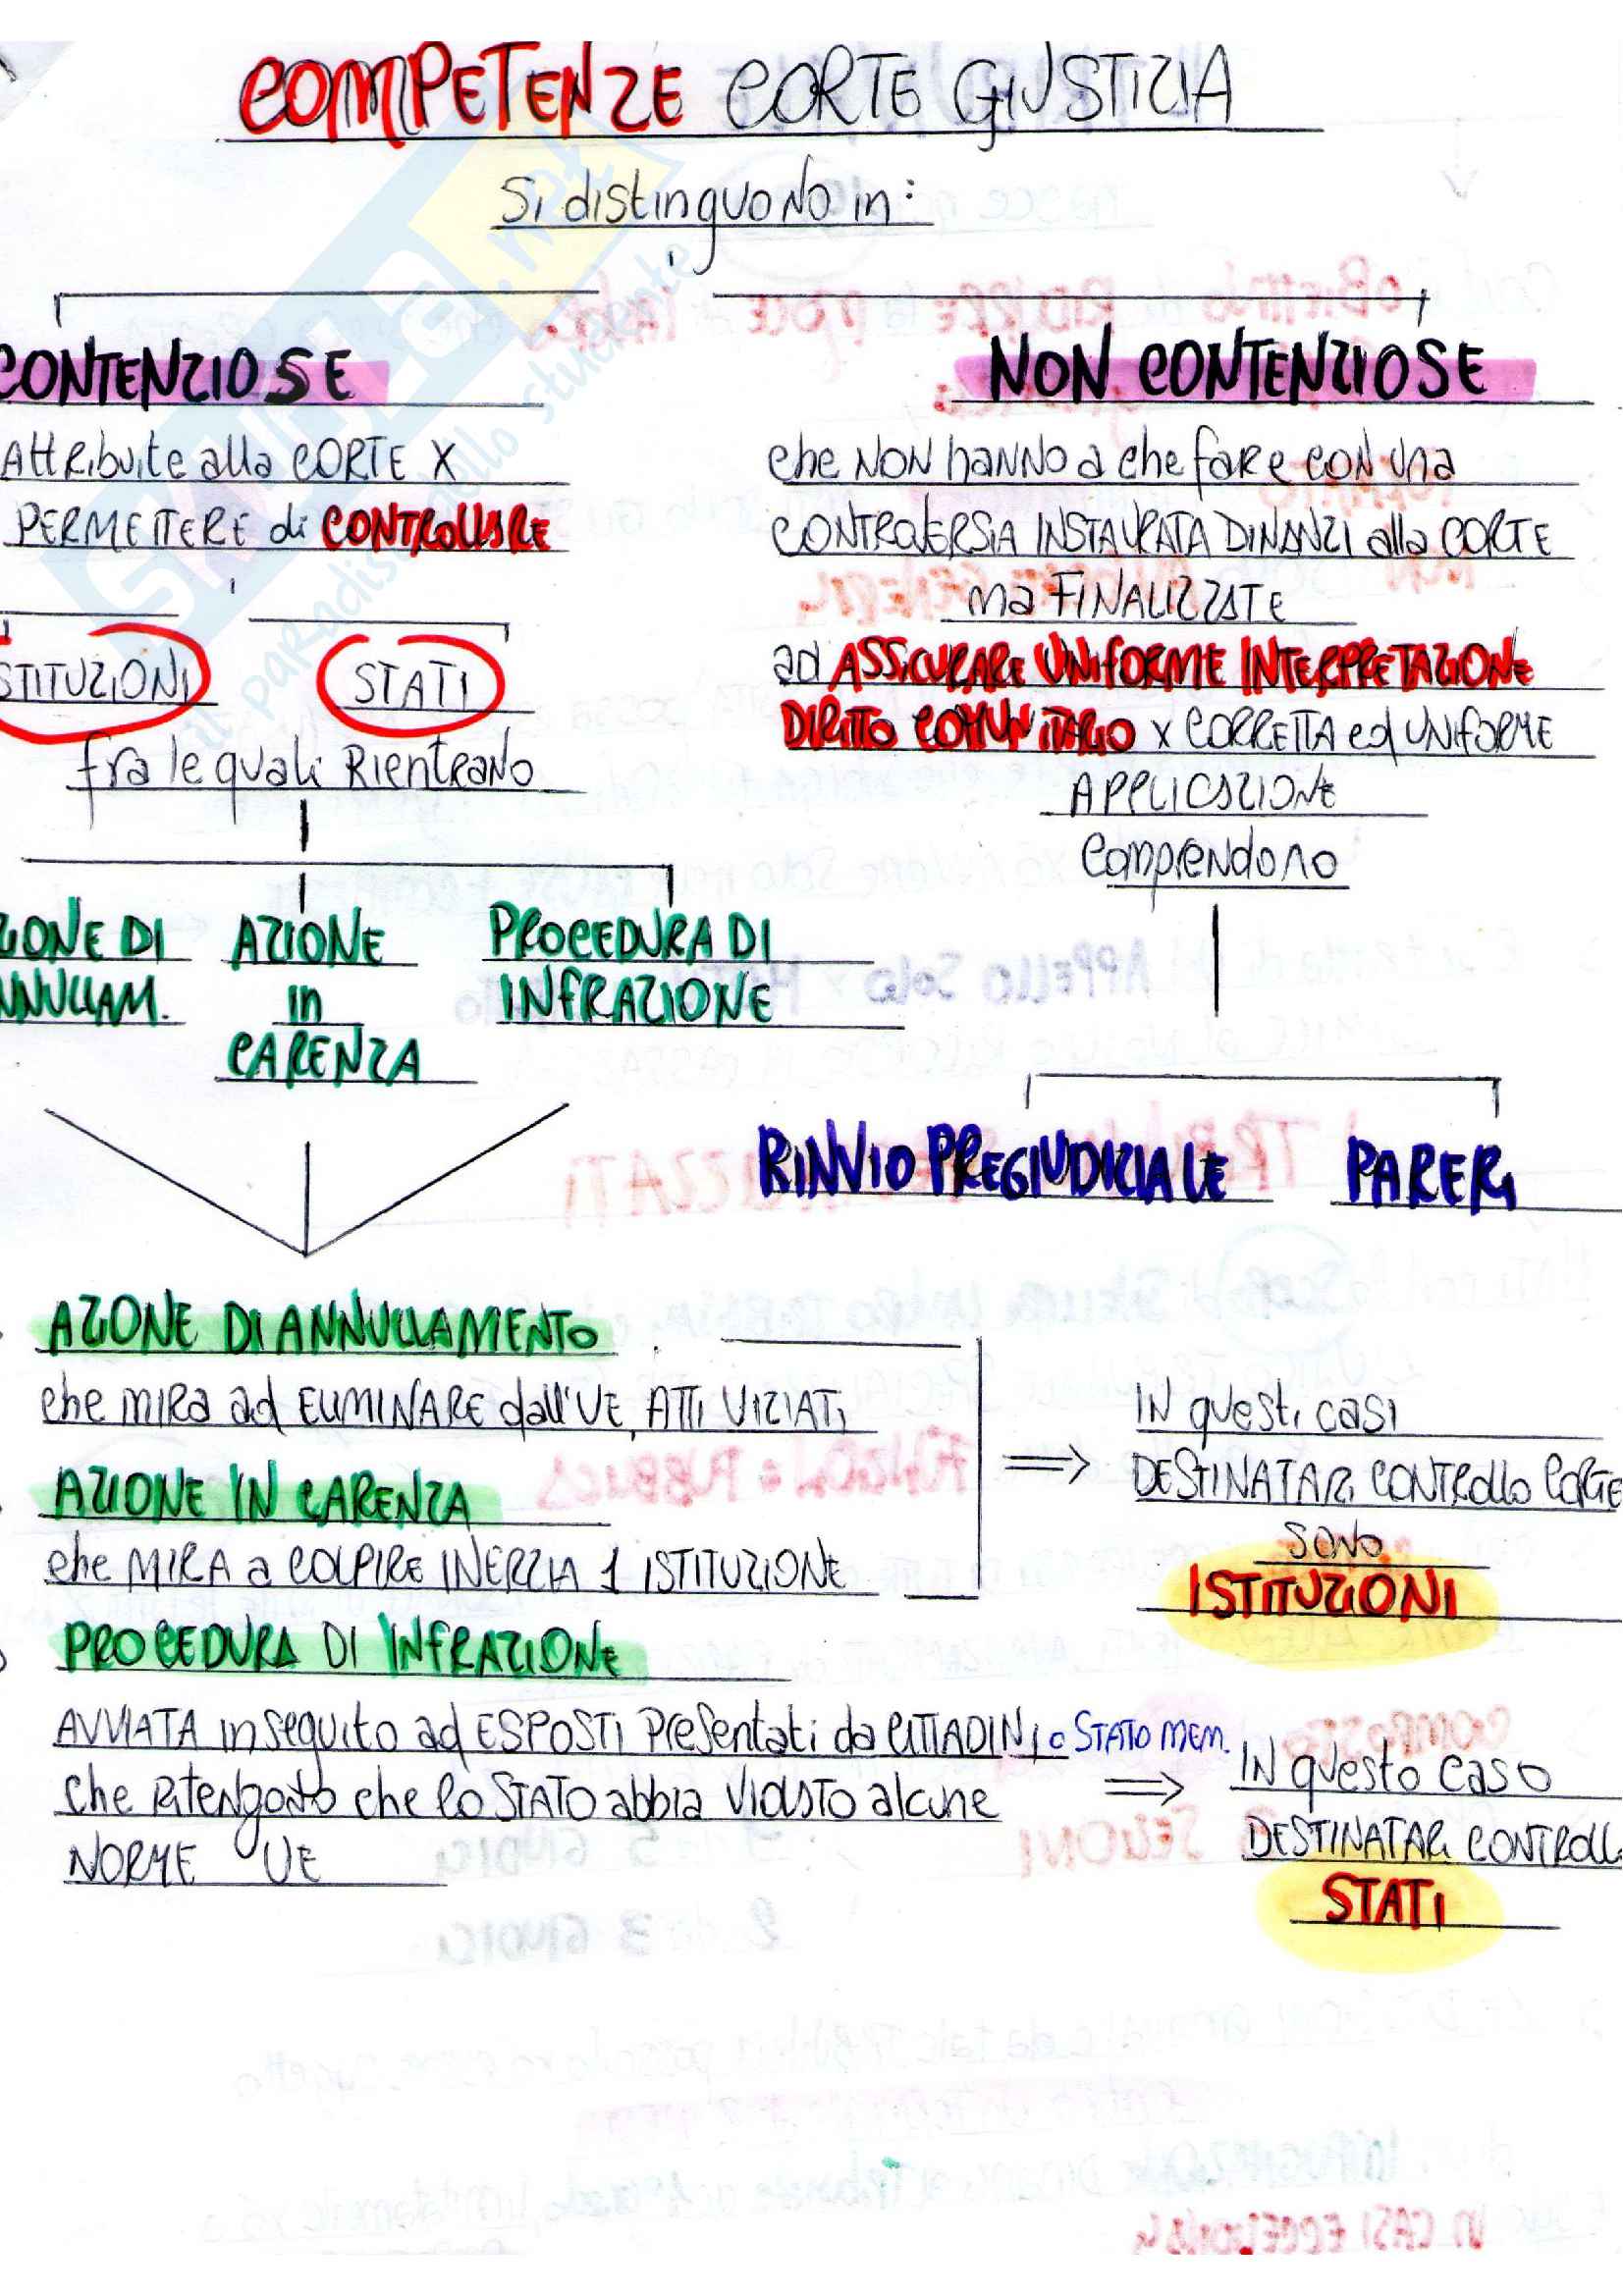 COMPETENZE CORTE GIUSTIZIA
Si distinguono in:
CONTENZIOSE
Attribuite alla CORTE X
PERMETTERE di CONTROLLARE
STITUZIONI STATI
fra le quali Rientrano
ZIONE DI AZIONE PROCEDURA DI
NNULLAM. in INFRAZIONE
CARENZA
NON CONTENZIOSE
che NON hanno a che fare con una
CONTROVERSIA INSTAURATA DINANZI alla CORTE
ma FINALIZZATE
ad ASSICURARE UNIFORME INTERPRETAZIONE
DIRITTO COMUNITARIO x CORRETTA ed UNIFORME
APPLICAZIONE
Comprendono
RINVIO PREGIUDIZIALE PARERI
AZIONE DI ANNULLAMENTO
che MIRA ad ELIMINARE dall'UE, ATTI VIZIATI
AZIONE IN CARENZA
che MIRA a COLPIRE INERZIA 1 ISTITUZIONE
IN questi casi
DESTINATARI CONTROLLO CORTE
SONO
ISTITUZIONI
PROCEDURA DI INFRAZIONE
AVVIATA in seguito ad ESPOSTI Presentati da CITTADINI o STATO MEM.
che Ritengono che lo STATO abbia VIOLATO alcune
NORME UE
IN questo caso
DESTINATARI CONTROLL
STATI
SKUOLA.net
il paradiso dello studente